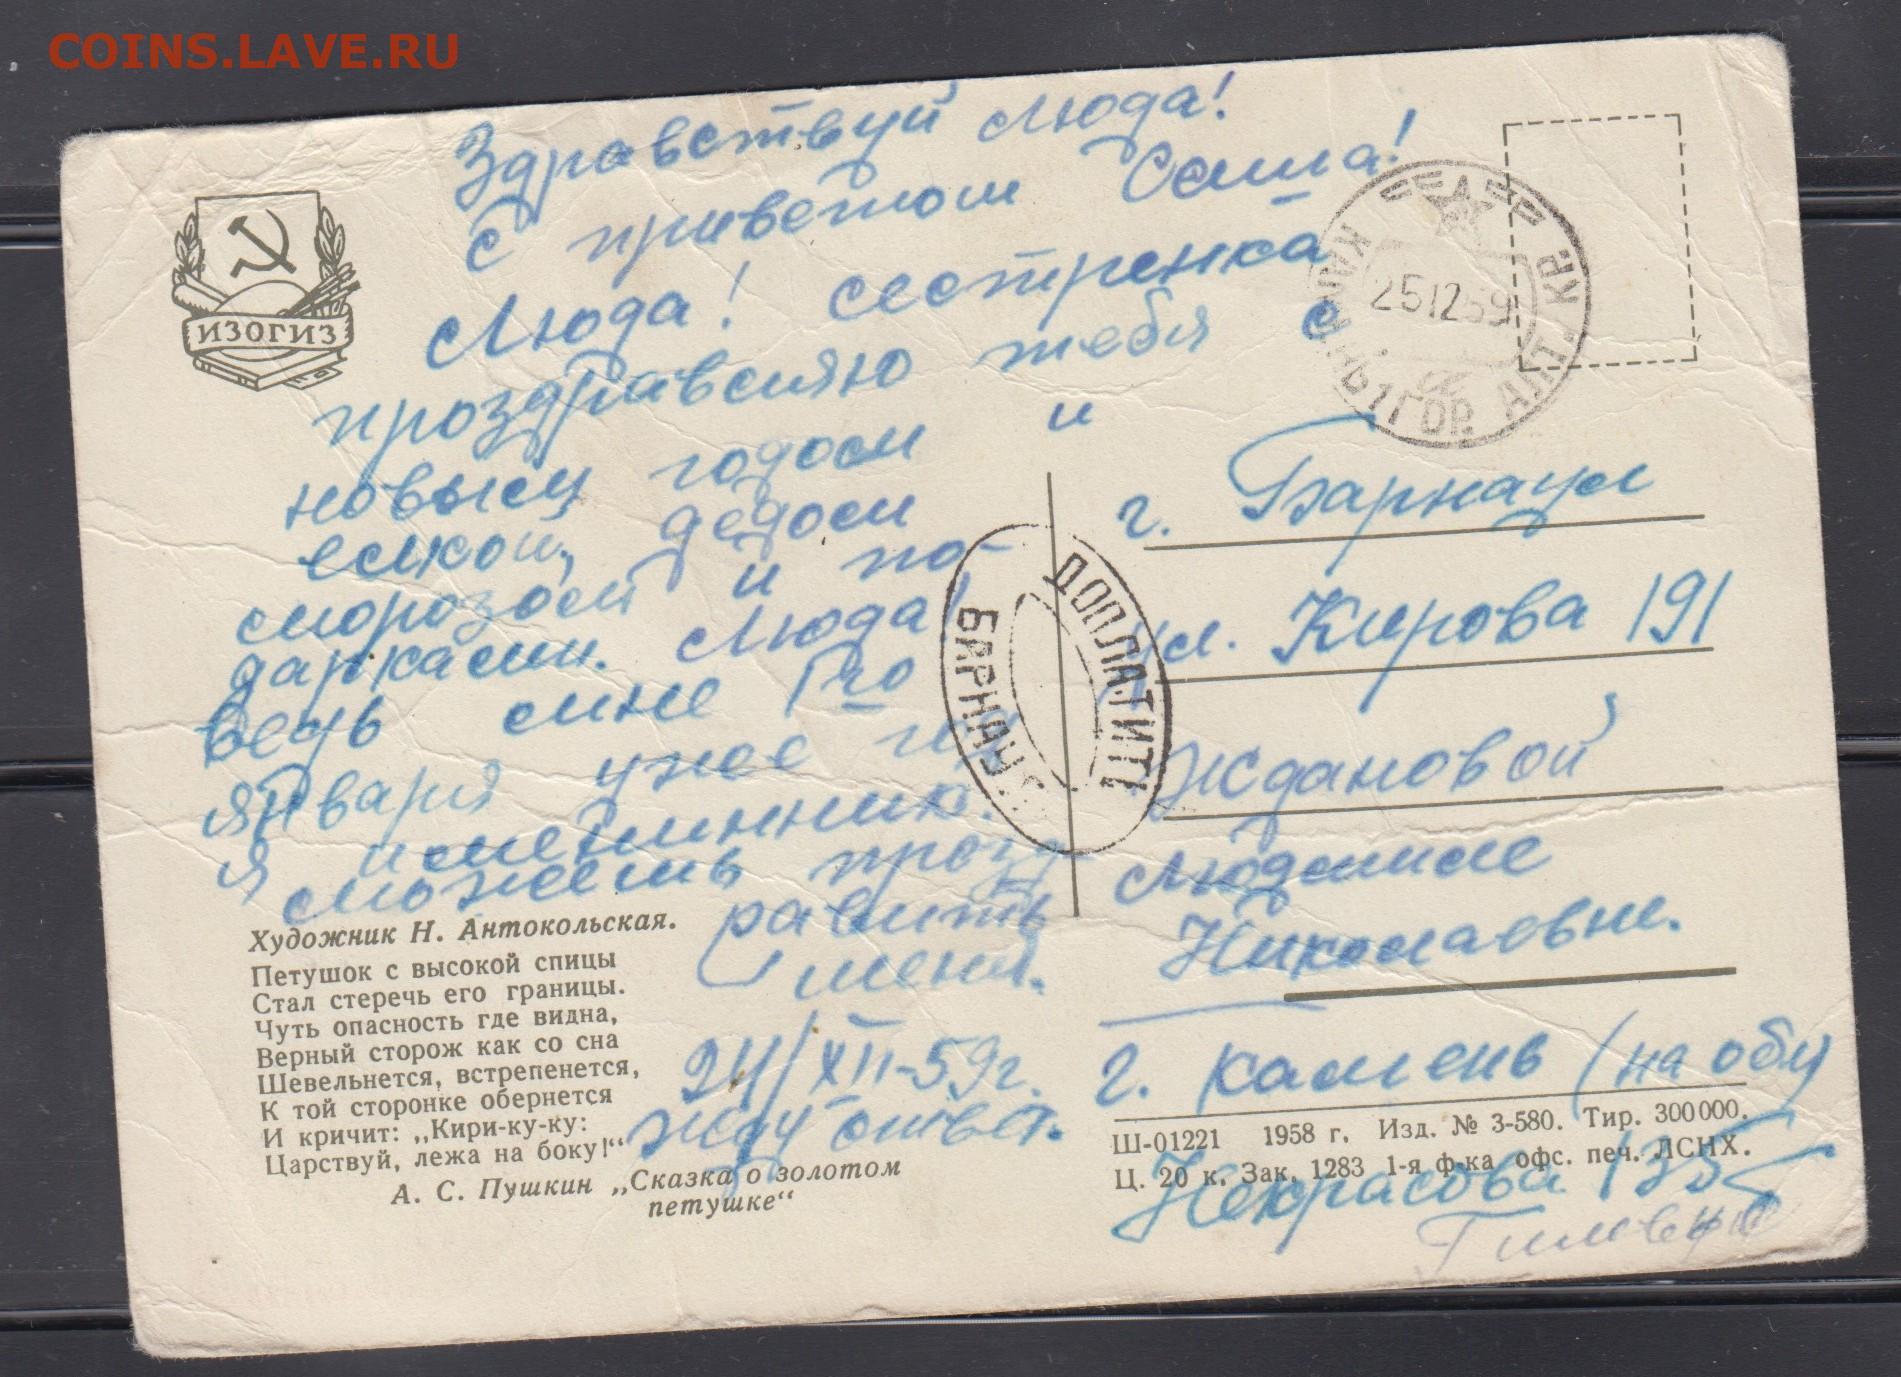 COINS.LAVE.RU
ИЗОГИЗ
Здравствуй Люда!
с приветом Саша!
Люда! сестренка
проздравляю тебя с
новым годом и
елкой, дедом
морозом и по-
дарками. Люда!
ведь мне 7го
января уже год
я именинник.
можешь прозд
равить
меня.
24/XII-59г.
жду ответ.
Художник Н. Антокольская.
Петушок с высокой спицы
Стал стеречь его границы.
Чуть опасность где видна,
Верный сторож как со сна
Шевельнется, встрепенется,
К той сторонке обернется
И кричит: „Кири-ку-ку:
Царствуй, лежа на боку!“
А. С. Пушкин „Сказка о золотом
петушке“
25 12 59
ГОР. АЛТ. КР.
ДОПЛАТИТЬ
БАРНАУЛ
г. Барнаул
ул. Кирова 191
Ждановой
Людмиле
Николаевне.
г. Камень (на оби)
Ш-01221 1958 г. Изд. № 3-580. Тир. 300 000.
Ц. 20 к. Зак. 1283 1-я ф-ка офс. печ. ЛСНХ.
Некрасова 135